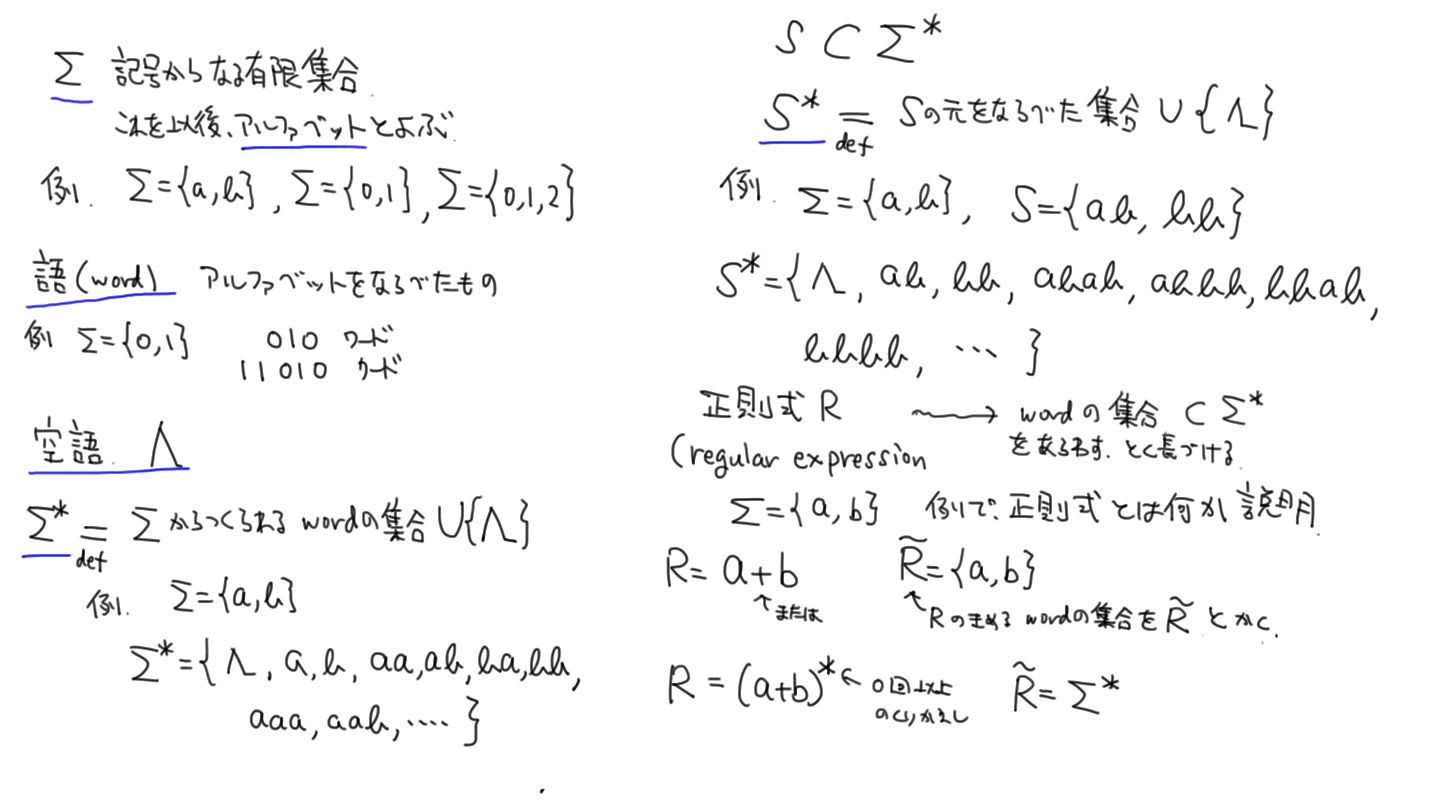 Σ 記号からなる有限集合.
これを以後、アルファベットとよぶ.
例. Σ={a,b}, Σ={0,1}, Σ={0,1,2}
語(word) アルファベットをならべたもの
例 Σ={0,1} 010 ワード
11010 ワード
空語. Λ
Σ* = Σからつくられる wordの集合 ∪{Λ}
def
例. Σ={a,b}
Σ*={Λ, a, b, aa, ab, ba, bb,
aaa, aab, ····}
S ⊂ Σ*
S* = Sの元をならべた集合 ∪ {Λ}
def
例. Σ={a,b}, S={ab, bb}
S*={Λ, ab, bb, abab, abbb, bbab,
bbbb, ···}
正則式 R ⟿ wordの集合 ⊂ Σ*
(regular expression をあらわす.
Σ={a,b} 例で、正則式とは何か説明.
R= a+b R̃={a,b}
↑または ↑Rのきめる wordの集合を R̃ とかく.
R = (a+b)* ← 0回以上 R̃= Σ*
のくりかえし